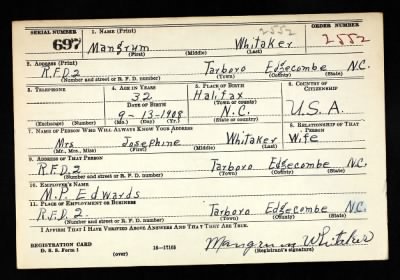 SERIAL NUMBER 1. NAME (Print) 2552 ORDER NUMBER
697 Mangrum Whitaker 2552
(First) (Middle) (Last)
2. ADDRESS (Print)
R.F.D 2 Tarboro Edgecombe N.C.
(Number and street or R. F. D. number) (Town) (County) (State)
3. TELEPHONE 4. AGE IN YEARS 5. PLACE OF BIRTH 6. COUNTRY OF CITIZENSHIP
32 Halifax
DATE OF BIRTH (Town or county)
9-13-1908 N.C. U.S.A.
(Exchange) (Number) (Mo.) (Day) (Yr.) (State or country)
7. NAME OF PERSON WHO WILL ALWAYS KNOW YOUR ADDRESS 8. RELATIONSHIP OF THAT PERSON
Mrs Josephine Whitaker Wife
(Mr., Mrs., Miss) (First) (Middle) (Last)
9. ADDRESS OF THAT PERSON
R.F.D 2 Tarboro Edgecombe N.C.
(Number and street or R. F. D. number) (Town) (County) (State)
10. EMPLOYER'S NAME
Edwards
11. PLACE OF EMPLOYMENT OR BUSINESS
R.F.D 2. Tarboro Edgecombe N.C.
(Number and street or R. F. D. number) (Town) (County) (State)
I AFFIRM THAT I HAVE VERIFIED ABOVE ANSWERS AND THAT THEY ARE TRUE.
REGISTRATION CARD 16-17105 Mangrum Whitaker
D. S. S. Form 1 (over) (Registrant's signature)